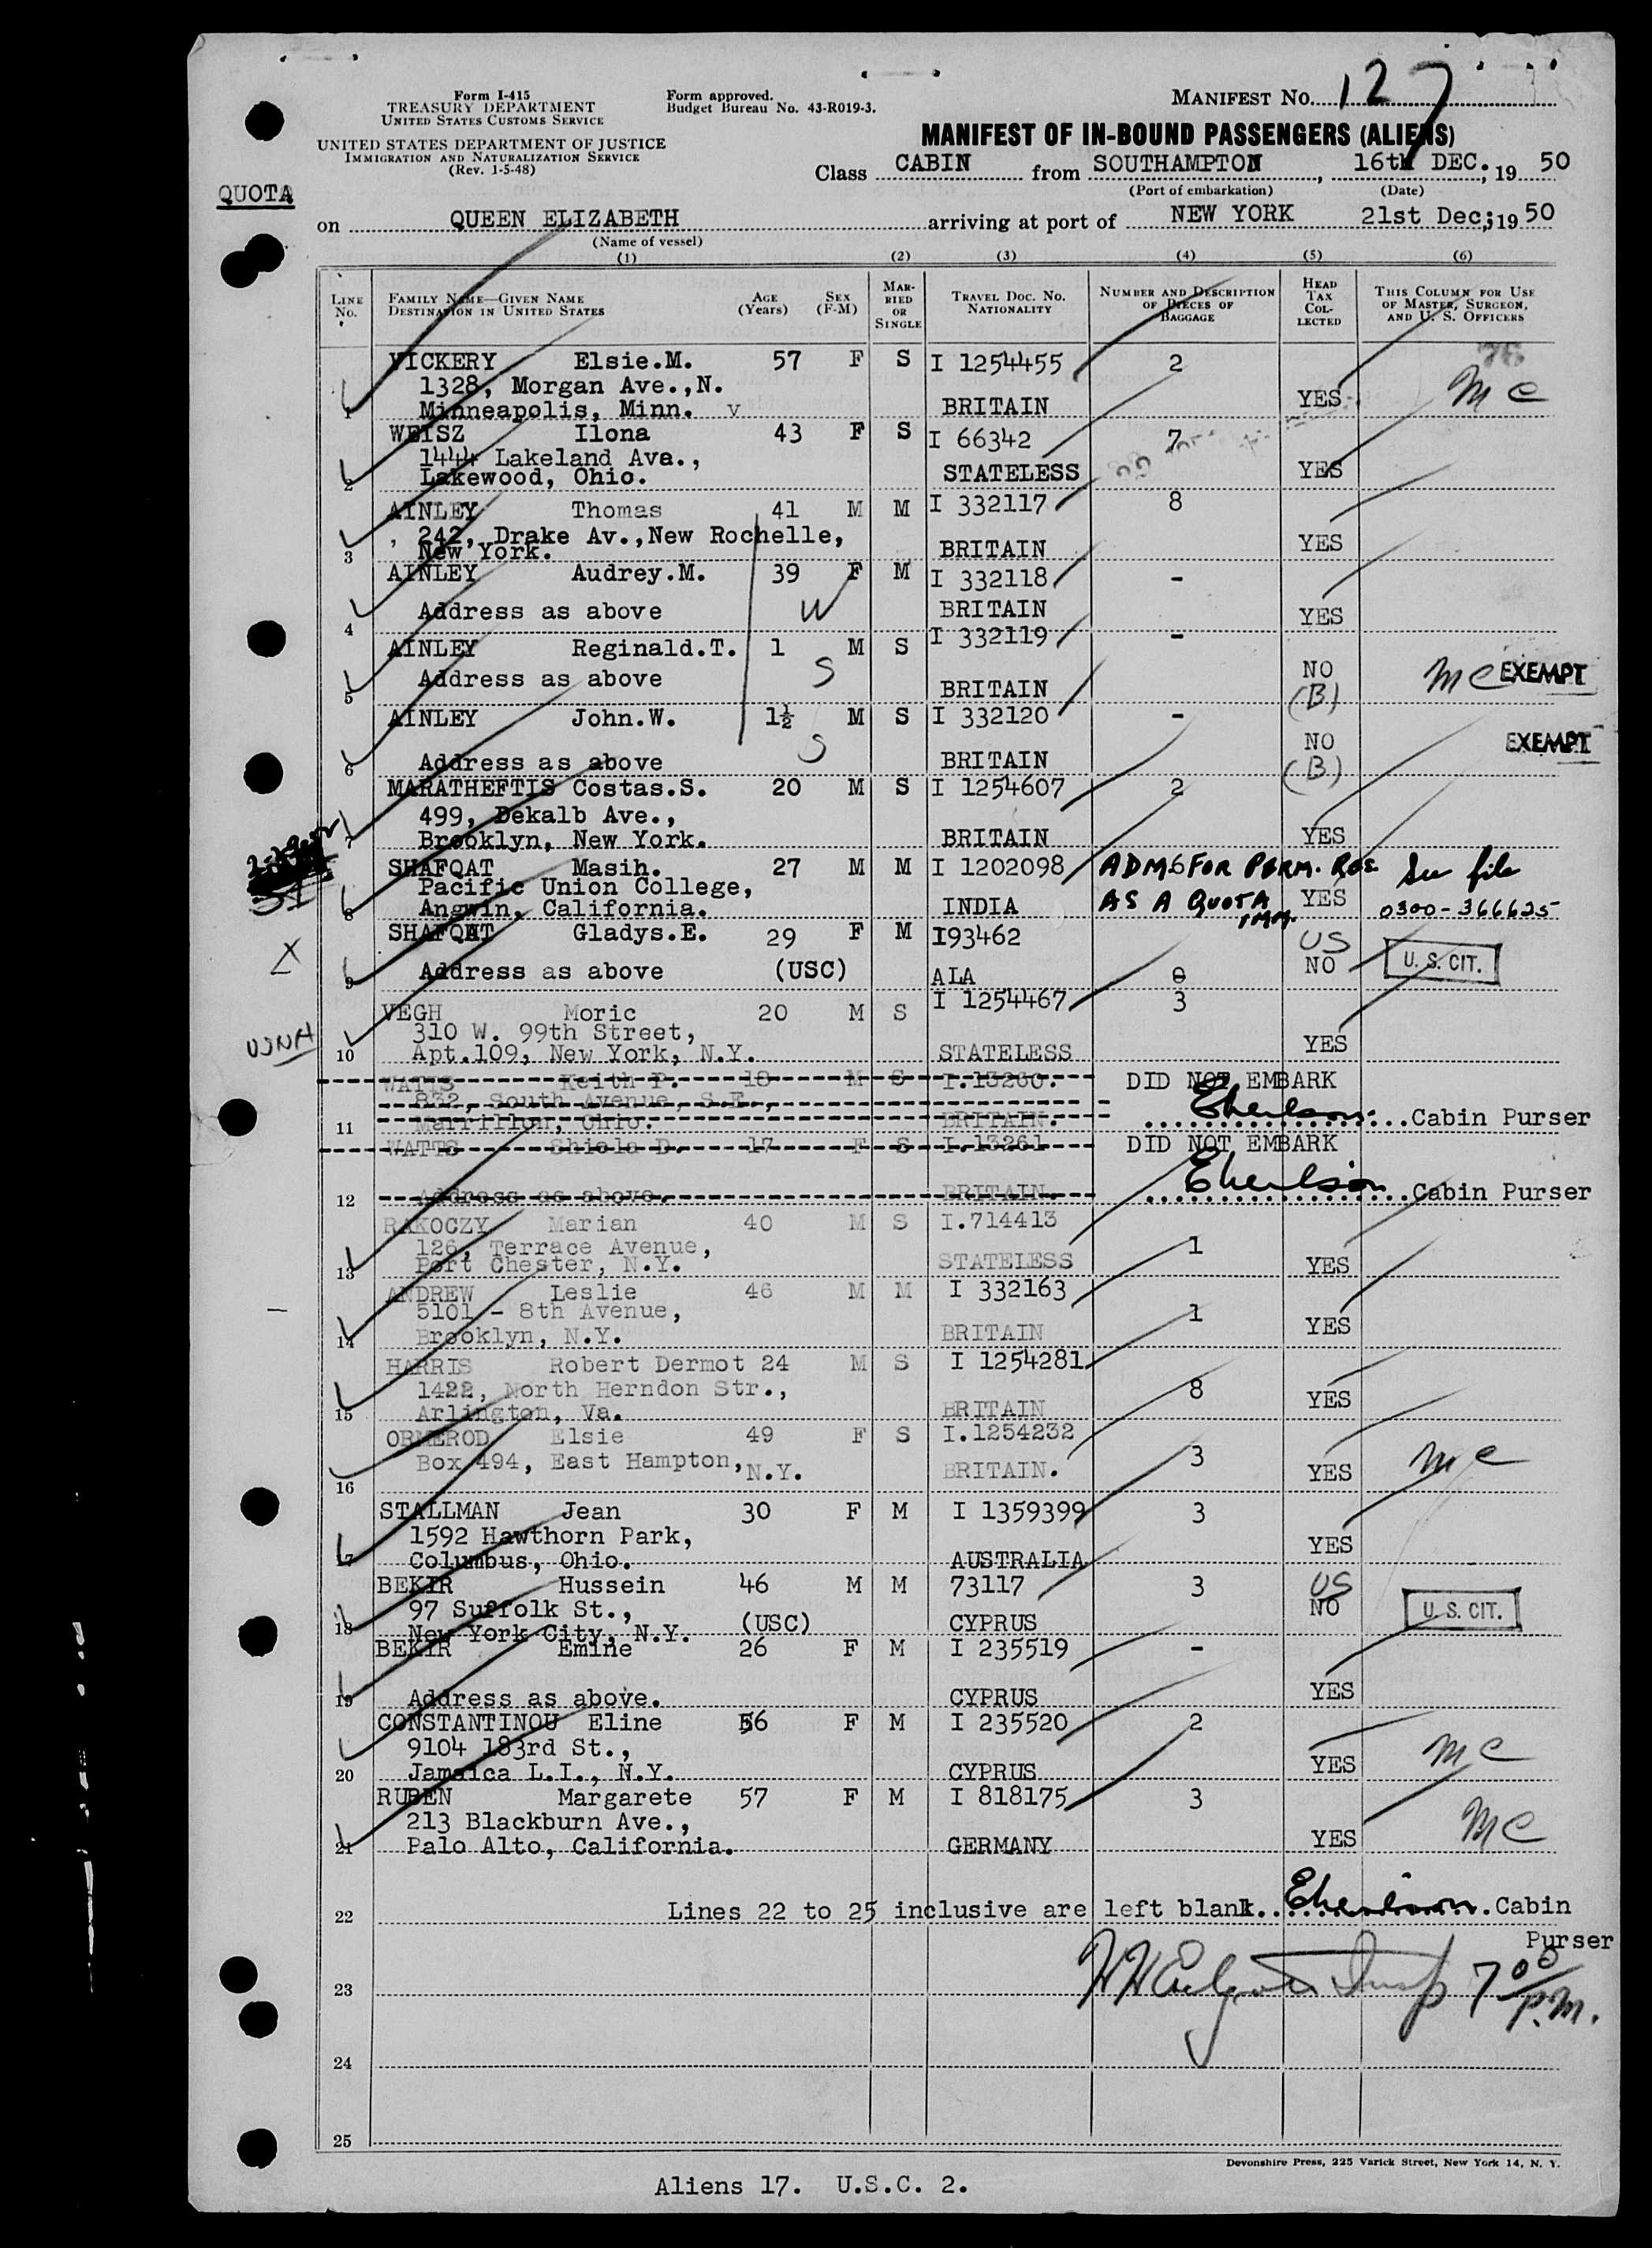 Form I-415
TREASURY DEPARTMENT
UNITED STATES CUSTOMS SERVICE
UNITED STATES DEPARTMENT OF JUSTICE
IMMIGRATION AND NATURALIZATION SERVICE
(Rev. 1-5-48)
Form approved.
Budget Bureau No. 43-R019-3.
MANIFEST No. 127
MANIFEST OF IN-BOUND PASSENGERS (ALIENS)
Class CABIN from SOUTHAMPTON, 16th DEC., 19 50
(Port of embarkation) (Date)
QUOTA
on QUEEN ELIZABETH arriving at port of NEW YORK 21st Dec; 19 50
(Name of vessel)
(1) (2) (3) (4) (5) (6)
LINE No. FAMILY NAME—GIVEN NAME DESTINATION IN UNITED STATES AGE (Years) SEX (F-M) MARRIED OR SINGLE TRAVEL DOC. NO. NATIONALITY NUMBER AND DESCRIPTION OF PIECES OF BAGGAGE HEAD TAX COLLECTED THIS COLUMN FOR USE OF MASTER, SURGEON, AND U. S. OFFICERS
VICKERY Elsie.M. 57 F S I 1254455 2
1328, Morgan Ave.,N. YES MC
1 Minneapolis, Minn. v BRITAIN
WEISZ Ilona 43 F S I 66342 7
1444 Lakeland Ave.,
2 Lakewood, Ohio. STATELESS YES
AINLEY Thomas 41 M M I 332117 8
, 242, Drake Av.,New Rochelle,
3 New York. BRITAIN YES
AINLEY Audrey.M. 39 F M I 332118 -
W
4 Address as above BRITAIN YES
AINLEY Reginald.T. 1 M S I 332119 -
S
5 Address as above BRITAIN NO (B) MC EXEMPT
AINLEY John.W. 1½ M S I 332120 -
S
6 Address as above BRITAIN NO (B) EXEMPT
MARATHEFTIS Costas.S. 20 M S I 1254607 2
499, Dekalb Ave.,
7 Brooklyn, New York. BRITAIN YES
SHAFQAT Masih. 27 M M I 1202098 6 ADM. FOR PERM. RES. See file
Pacific Union College,
8 Angwin, California. INDIA AS A QUOTA IMM. YES 0300-366625
SHAFQAT Gladys.E. 29 F M I93462 US
X
9 Address as above (USC) ALA 0 NO U. S. CIT.
VEGH Moric 20 M S I 1254467 3
310 W. 99th Street,
10 Apt.109, New York, N.Y. STATELESS YES
WATTS Keith P. 18 M S I.13260. DID NOT EMBARK
832, South Avenue, S.E.,
11 Ohio. BRITAIN. Cabin Purser
WATTS Shiela D. 17 F S I.13261 DID NOT EMBARK
12 Address as above. BRITAIN. Cabin Purser
RAKOCZY Marian 40 M S I.714413
126, Terrace Avenue, 1
13 Port Chester, N.Y. STATELESS YES
ANDREW Leslie 46 M M I 332163
5101 - 8th Avenue, 1
14 Brooklyn, N.Y. BRITAIN YES
HARRIS Robert Dermot 24 M S I 1254281
1422, North Herndon Str., 8
15 Arlington, Va. BRITAIN YES
ORMEROD Elsie 49 F S I.1254232
Box 494, East Hampton, N.Y. BRITAIN. 3 YES MC
16
STALLMAN Jean 30 F M I 1359399 3
1592 Hawthorn Park,
17 Columbus, Ohio. AUSTRALIA YES
BEKIR Hussein 46 M M 73117 3 US
97 Suffolk St., NO U. S. CIT.
18 New York City, N.Y. (USC) CYPRUS
BEKIR Emine 26 F M I 235519 -
19 Address as above. CYPRUS YES
CONSTANTINOU Eline 56 F M I 235520 2
9104 183rd St.,
20 Jamaica L.I., N.Y. CYPRUS YES MC
RUBEN Margarete 57 F M I 818175 3
213 Blackburn Ave.,
21 Palo Alto, California. GERMANY YES MC
22 Lines 22 to 25 inclusive are left blank. Cabin
Purser
23 7 00 P.M.
24
25
Devonshire Press, 225 Varick Street, New York 14, N. Y.
Aliens 17. U.S.C. 2.